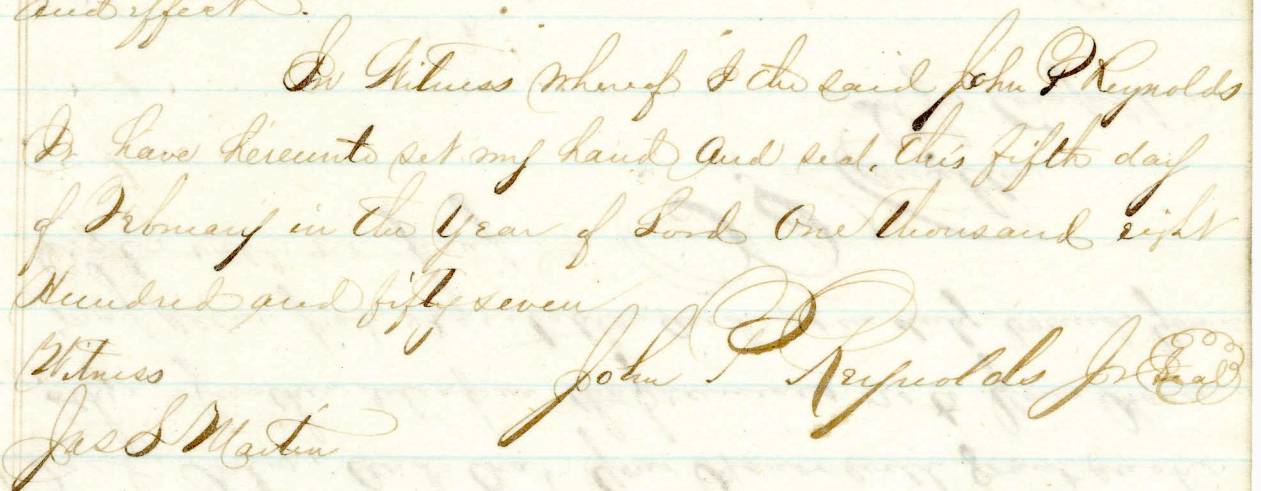 and effect.
In Witness whereof I the said John P Reynolds
Jr have hereunto set my hand and seal, this fifth day
of February in the Year of Lord One thousand eight
Hundred and fifty seven
Witness John P Reynolds Jr Seal
Jas S Martin